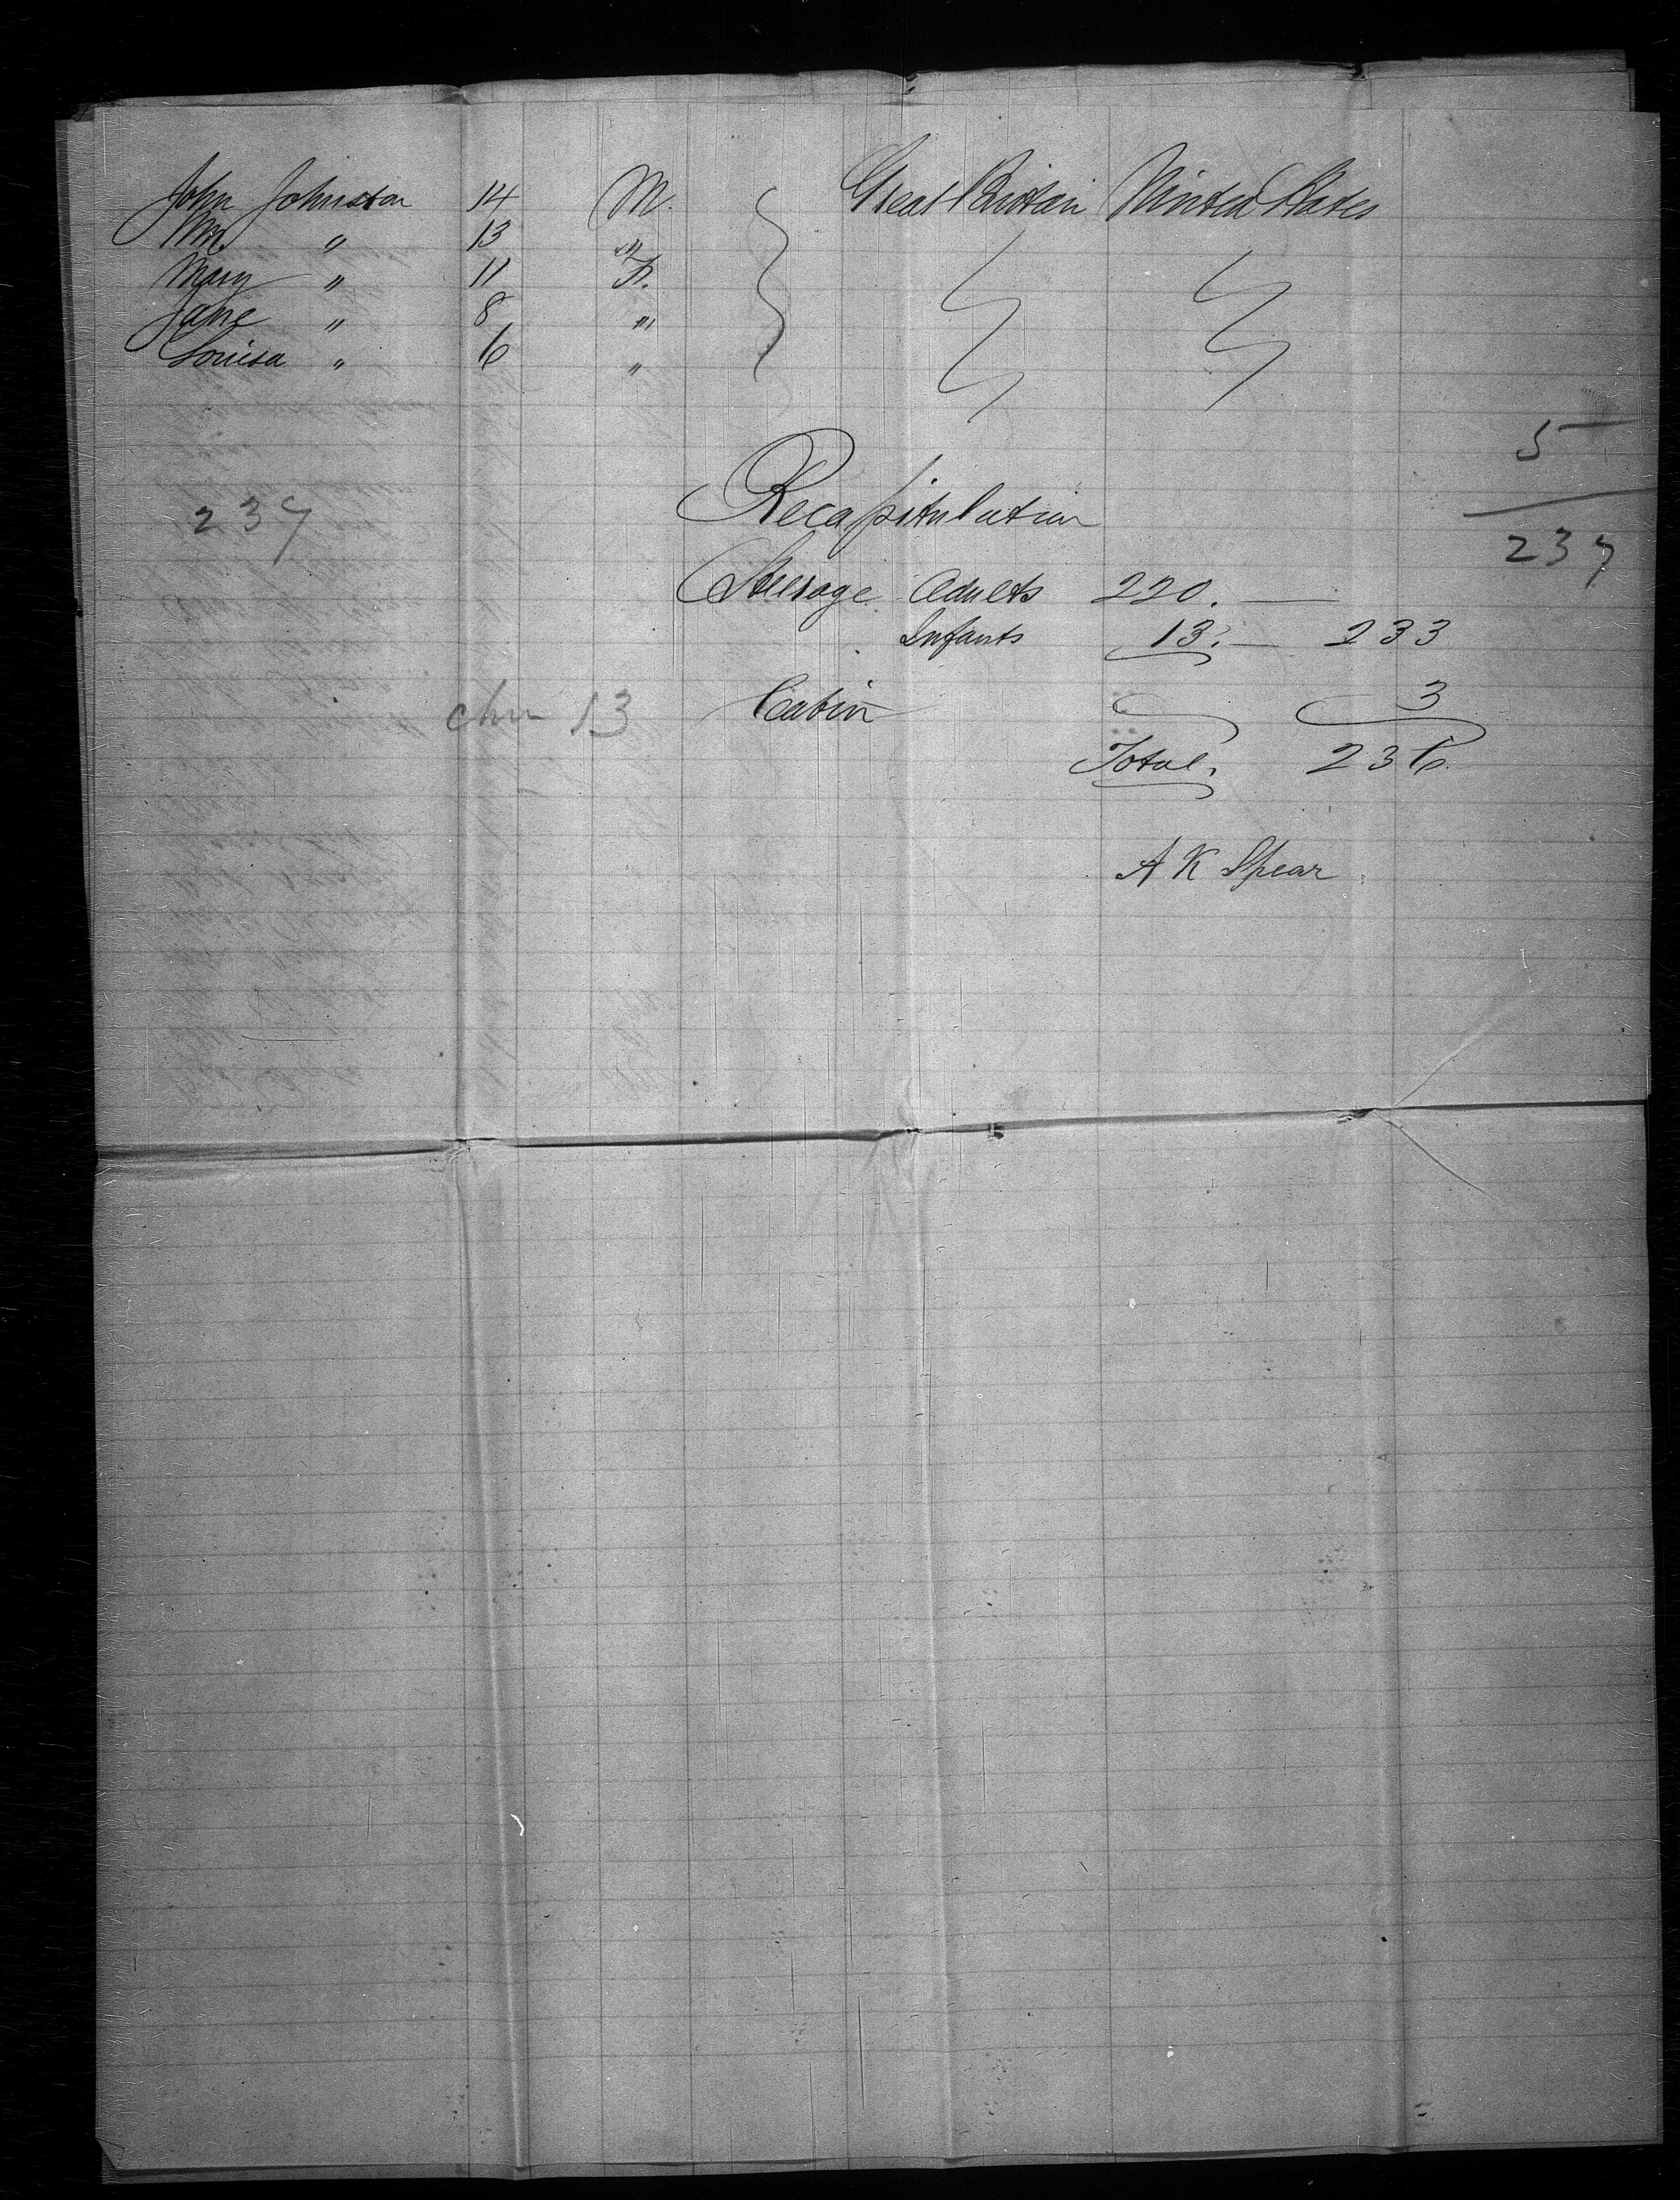 John Johnston 14 M. Great Britain United States
Wm " 13 "
Mary " 11 F.
Jane " 8 "
Louisa " 6 "
5
Recapitulation
237 237
Steerage Adults 220.
Infants 13. 233
chn 13 Cabin 3
Total. 236.
A K Spear